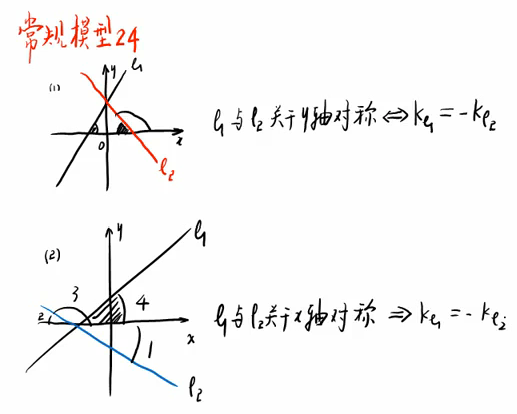 常规模型24
(1)
y
l₁
O
x
l₂
l₁与l₂关于y轴对称⇔k_{l₁}=-k_{l₂}
(2)
y
l₁
3
4
2
x
1
l₂
l₁与l₂关于x轴对称⇒k_{l₁}=-k_{l₂}